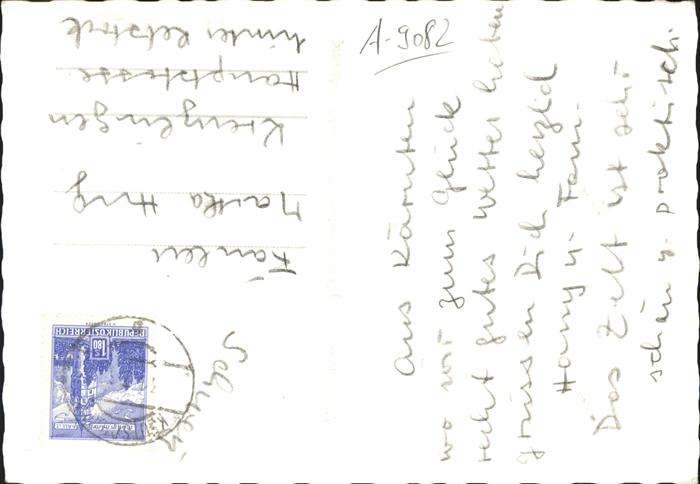 A-9082
Aus Kärnten
wo wir zum Glück
recht gutes Wetter haben
grüssen Dich herzlich
Hany u. Fam.
Das Zelt ist sehr
schön u. praktisch
Fräulein
Martha Hug
Kreuzlingen
Hauptstrasse
hinter Rebstock
Schweiz
REPUBLIK ÖSTERREICH
S 1.80